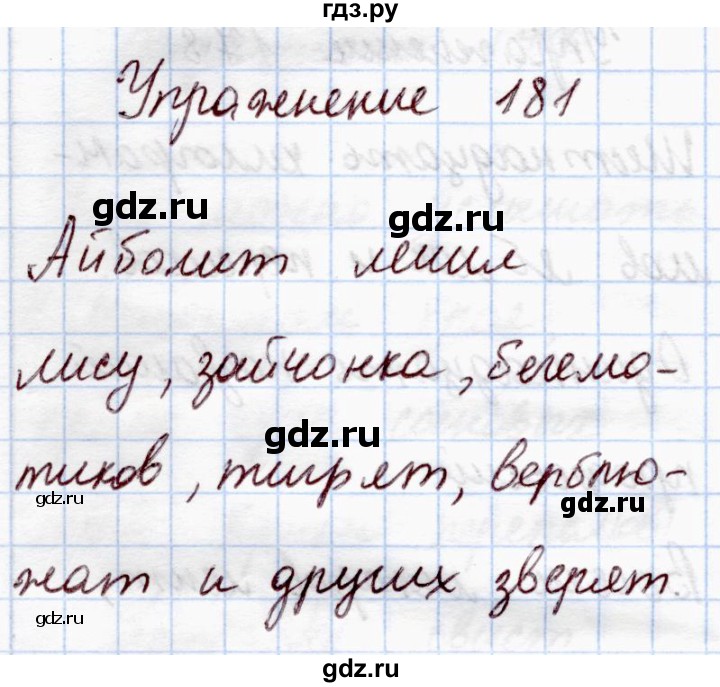 гдз.ру
Упражнение 181
gdz.ru
gdz.ru
Айболит лечил
лису, зайчонка, бегемо-
gdz.ru
тиков, тигрят, верблю-
gdz.ru
gdz.ru
жат и других зверят.
gdz.ru
gdz.ru
gdz.ru